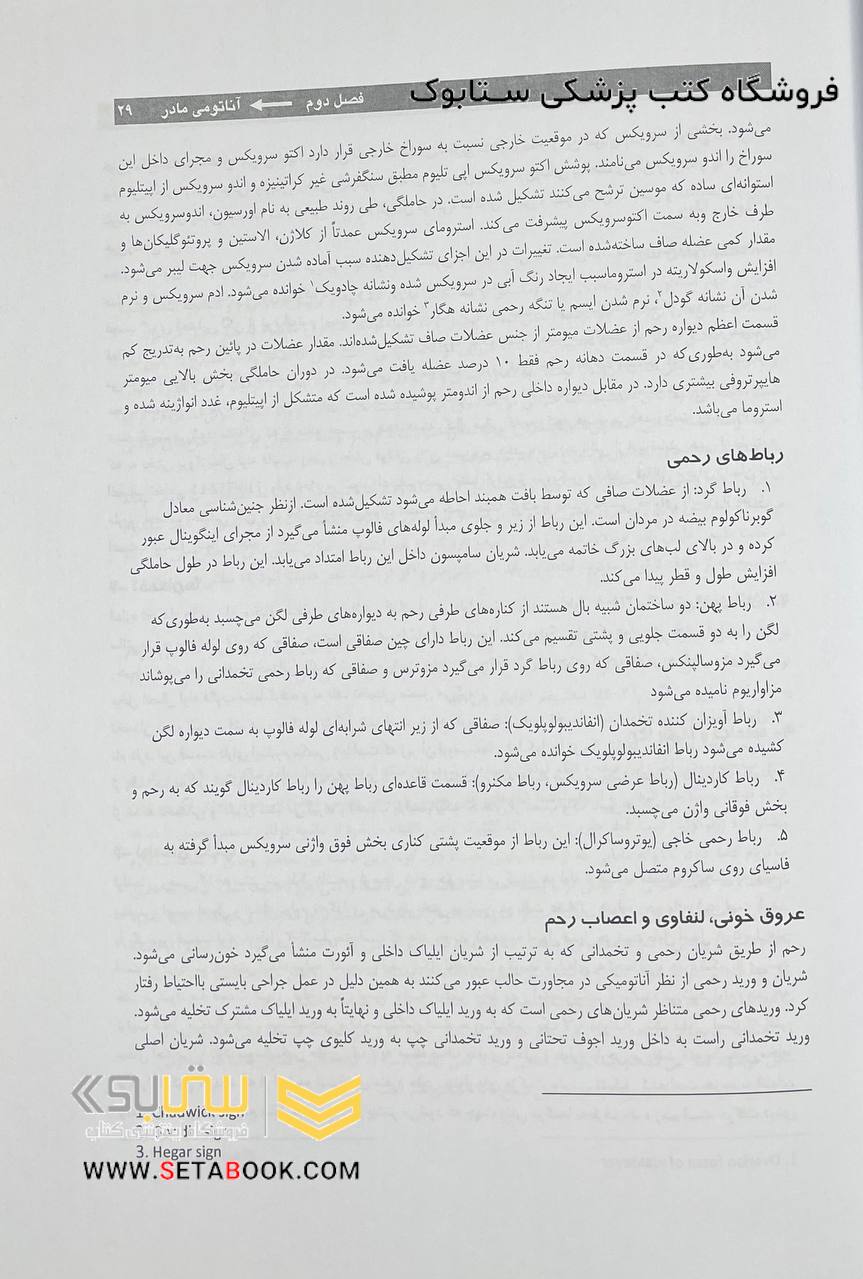 فروشگاه کتب پزشکی ستابوک
فصل دوم ← آناتومی مادر ۲۹
می‌شود. بخشی از سرویکس که در موقعیت خارجی نسبت به سوراخ خارجی قرار دارد اکتو سرویکس و مجرای داخل این
سوراخ را اندو سرویکس می‌نامند. پوشش اکتو سرویکس اپی تلیوم مطبق سنگفرشی غیر کراتینیزه و اندو سرویکس از اپیتلیوم
استوانه‌ای ساده که موسین ترشح می‌کنند تشکیل شده است. در حاملگی، طی روند طبیعی به نام اورسیون، اندوسرویکس به
طرف خارج وبه سمت اکتوسرویکس پیشرفت می‌کند. استرومای سرویکس عمدتاً از کلاژن، الاستین و پروتئوگلیکان‌ها و
مقدار کمی عضله صاف ساخته‌شده است. تغییرات در این اجزای تشکیل‌دهنده سبب آماده شدن سرویکس جهت لیبر می‌شود.
افزایش واسکولاریته در استروماسبب ایجاد رنگ آبی در سرویکس شده ونشانه چادویک۱ خوانده می‌شود. ادم سرویکس و نرم
شدن آن نشانه گودل۲، نرم شدن ایسم یا تنگه رحمی نشانه هگار۳ خوانده می‌شود.
قسمت اعظم دیواره رحم از عضلات میومتر از جنس عضلات صاف تشکیل‌شده‌اند. مقدار عضلات در پائین رحم به‌تدریج کم
می‌شود به‌طوری‌که در قسمت دهانه رحم فقط ۱۰ درصد عضله یافت می‌شود. در دوران حاملگی بخش بالایی میومتر
هایپرتروفی بیشتری دارد. در مقابل دیواره داخلی رحم از اندومتر پوشیده شده است که متشکل از اپیتلیوم، غدد انواژینه شده و
استروما می‌باشد.
رباط‌های رحمی
۱. رباط گرد: از عضلات صافی که توسط بافت همبند احاطه می‌شود تشکیل‌شده است. ازنظر جنین‌شناسی معادل
گوبرناکولوم بیضه در مردان است. این رباط از زیر و جلوی مبدأ لوله‌های فالوپ منشأ می‌گیرد از مجرای اینگوینال عبور
کرده و در بالای لب‌های بزرگ خاتمه می‌یابد. شریان سامپسون داخل این رباط امتداد می‌یابد. این رباط در طول حاملگی
افزایش طول و قطر پیدا می‌کند.
۲. رباط پهن: دو ساختمان شبیه بال هستند از کناره‌های طرفی رحم به دیواره‌های طرفی لگن می‌چسبد به‌طوری‌که
لگن را به دو قسمت جلویی و پشتی تقسیم می‌کند. این رباط دارای چین صفاقی است، صفاقی که روی لوله فالوپ قرار
می‌گیرد مزوسالپنکس، صفاقی که روی رباط گرد قرار می‌گیرد مزوترس و صفاقی که رباط رحمی تخمدانی را می‌پوشاند
مزاواریوم نامیده می‌شود
۳. رباط آویزان کننده تخمدان (انفاندیبولوپلویک): صفاقی که از زیر انتهای شرابه‌ای لوله فالوپ به سمت دیواره لگن
کشیده می‌شود رباط انفاندیبولوپلویک خوانده می‌شود.
۴. رباط کاردینال (رباط عرضی سرویکس، رباط مکنرو): قسمت قاعده‌ای رباط پهن را رباط کاردینال گویند که به رحم و
بخش فوقانی واژن می‌چسبد.
۵. رباط رحمی خاجی (یوتروساکرال): این رباط از موقعیت پشتی کناری بخش فوق واژنی سرویکس مبدأ گرفته به
فاسیای روی ساکروم متصل می‌شود.
عروق خونی، لنفاوی و اعصاب رحم
رحم از طریق شریان رحمی و تخمدانی که به ترتیب از شریان ایلیاک داخلی و آئورت منشأ می‌گیرد خون‌رسانی می‌شود.
شریان و ورید رحمی از نظر آناتومیکی در مجاورت حالب عبور می‌کنند به همین دلیل در عمل جراحی بایستی بااحتیاط رفتار
کرد. وریدهای رحمی متناظر شریان‌های رحمی است که به ورید ایلیاک داخلی و نهایتاً به ورید ایلیاک مشترک تخلیه می‌شود.
ورید تخمدانی راست به داخل ورید اجوف تحتانی و ورید تخمدانی چپ به ورید کلیوی چپ تخلیه می‌شود. شریان اصلی
1. Chadwick sign
3. Hegar sign
ستابوک
فروشگاه اینترنتی کتاب
WWW.SETABOOK.COM